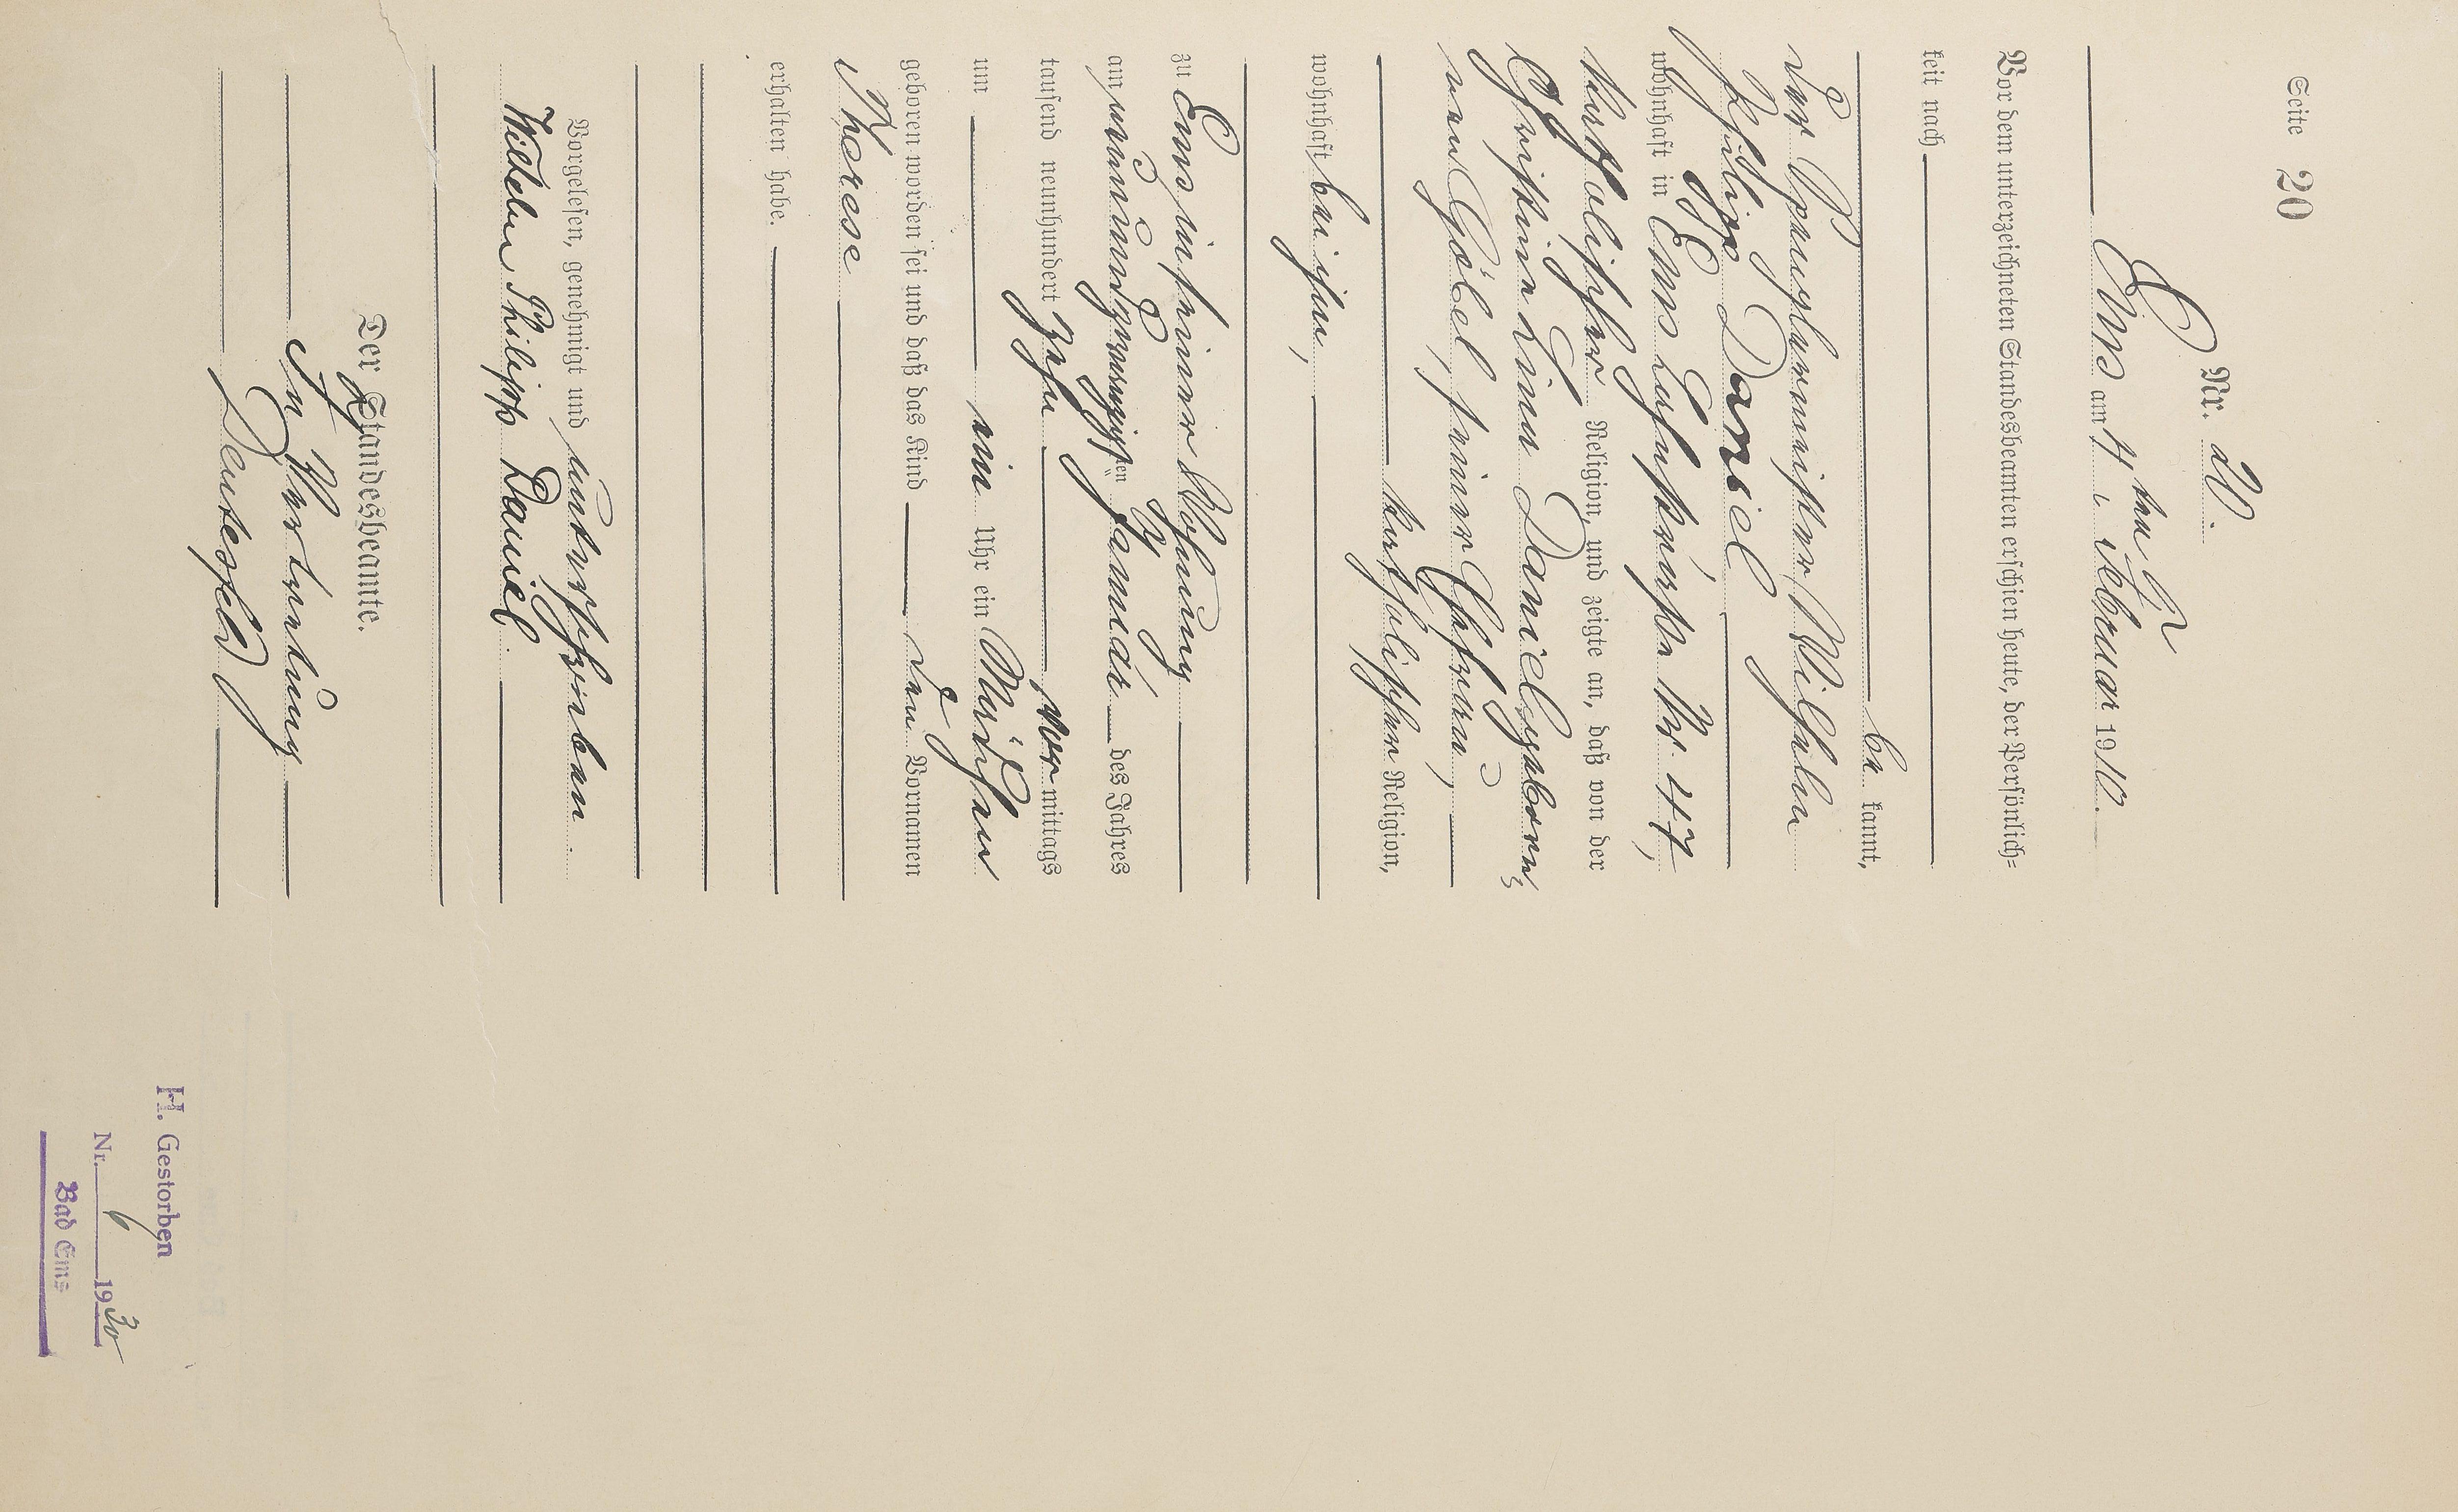 Seite 20
Nr. 20.
Ems am 4ten Februar 1910.
Vor dem unterzeichneten Standesbeamten erschien heute, der Persönlich=
keit nach
be kannt,
der Spenglermeister Wilhelm
Philipp Daniel
wohnhaft in Ems Lahnstraße Nr. 47,
katholischer Religion, und zeigte an, daß von der
Christina Lina Daniel geborene
Göbel, seiner Ehefrau,
katholischer Religion,
wohnhaft bei ihm,
zu Ems in seiner Wohnung
am neunundzwanzigsten Januar des Jahres
tausend neunhundert zehn vor mittags
um ein Uhr ein Mädchen
geboren worden sei und daß das Kind den Vornamen
Therese
erhalten habe.
Vorgelesen, genehmigt und unterschrieben.
Wilhelm Philipp Daniel.
Der Standesbeamte.
In Vertretung
H. Gestorben
Nr. 6 1930
Bad Ems